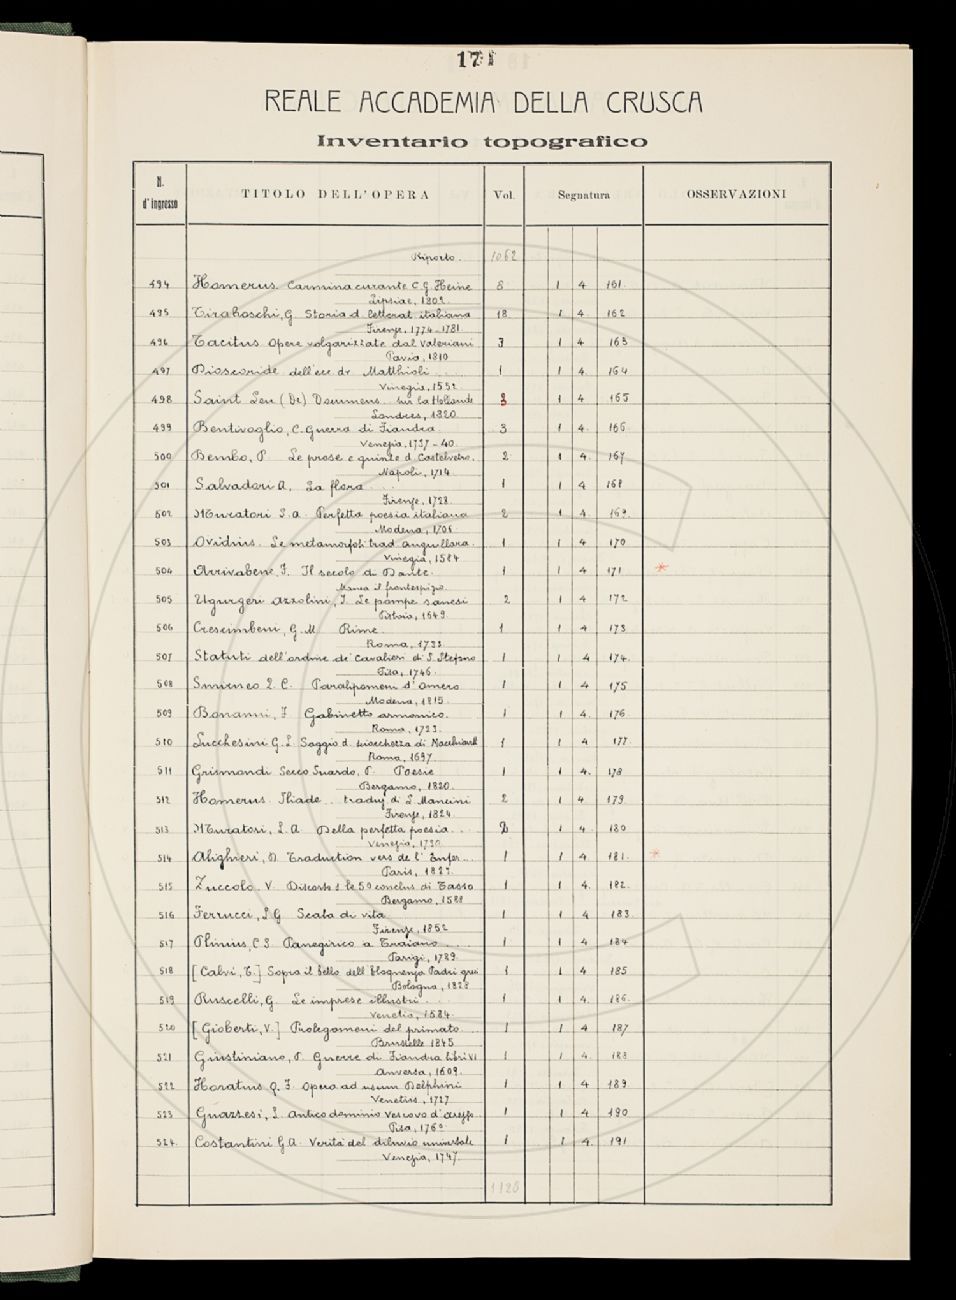 171
REALE ACCADEMIA DELLA CRUSCA
Inventario topografico
N. d'ingresso TITOLO DELL'OPERA Vol. Segnatura OSSERVAZIONI
Riporto. 1062
494 Homerus Carmina curante C. G. Heine 8 1 4 161.
Lipsiae, 1802.
495 Tiraboschi, G. Storia d. letterat. italiana 18 1 4. 162
Firenze, 1774-1781
496 Tacitus Opere volgarizzate dal Valeriani 3 1 4 163
Pavia, 1810
497 Dioscoride dell'ecc. dr Matthioli 1 1 4. 164
Vinegia, 1552
498 Saint Leu (De) Documens sur la Hollande 3 1 4 165
Londres, 1820
499 Bentivoglio, C. Guerra di Fiandra 3 1 4. 166
Venezia, 1737-40.
500 Bembo, P. Le prose e giunte d. Castelvetro. 2 1 4. 167
Napoli, 1714
501 Salvadori A. La flora 1 1 4 168
Firenze, 1728.
502 Muratori L. A. Perfetta poesia italiana 2 1 4. 169.
Modena, 1706.
503 Ovidius. Le metamorfosi trad. anguillara. 1 1 4 170
Vinegia, 1584
504 Arrivabene, F. Il secolo di Dante. 1 1 4 171 *
Manca il frontespizio.
505 Ugurgeri Azzolini, I. Le pompe sanesi 2 1 4 172
Pistoia, 1649.
506 Crescimbeni, G. M. Rime. 1 1 4 173
Roma, 1723.
507 Statuti dell'ordine de' Cavalieri di S. Stefano 1 1 4 174.
Pisa, 1746.
508 Smirneo Q. C. Paralipomeni d'Omero 1 1 4 175
Modena, 1815.
509 Bonanni, F. Gabinetto armonico. 1 1 4. 176.
Roma, 1723.
510 Lucchesini G. L. Saggio d. sciocchezza di Macchiavelli 1 1 4 177.
Roma, 1697.
511 Grismondi Secco Suardo, P. Poesie 1 1 4. 178
Bergamo, 1820.
512 Homerus. Iliade traduz. di L. Mancini 2 1 4 179.
Firenze, 1824.
513 Muratori, L. A. Della perfetta poesia 2 1 4. 180
Venezia, 1730.
514 Alighieri, D. Traduction vers de l'Enfer 1 1 4 181. *
Paris, 1823.
515 Zuccolo. V. Discorso s. le 50 conclus. di Tasso 1 1 4. 182.
Bergamo, 1588
516 Ferrucci, L. G. Scala di vita 1 1 4 183.
Firenze, 1852
517 Plinius, C. S. Panegirico a Traiano 1 1 4 184
Parigi, 1789.
518 [Calvi, T.] Sopra il bello dell'eloquenza Padri greci 1 1 4 185
Bologna, 1828
519 Ruscelli, G. Le imprese illustri 1 1 4. 186.
Venetia, 1584.
520 [Gioberti, V.] Prolegomeni del primato 1 1 4 187
Brusselle 1845
521 Giustiniano, P. Guerre di Fiandra libri VI 1 1 4. 188
Anversa, 1609.
522 Horatius Q. F. Opera ad usum Delphini 1 1 4 189
Venetiis, 1727
523 Guazzesi, L. Antico dominio Vescovo d'Arezzo 1 1 4 190
Pisa, 1760
524. Costantini G. A. Verità del diluvio universale 1 1 4. 191
Venezia, 1747.
1128